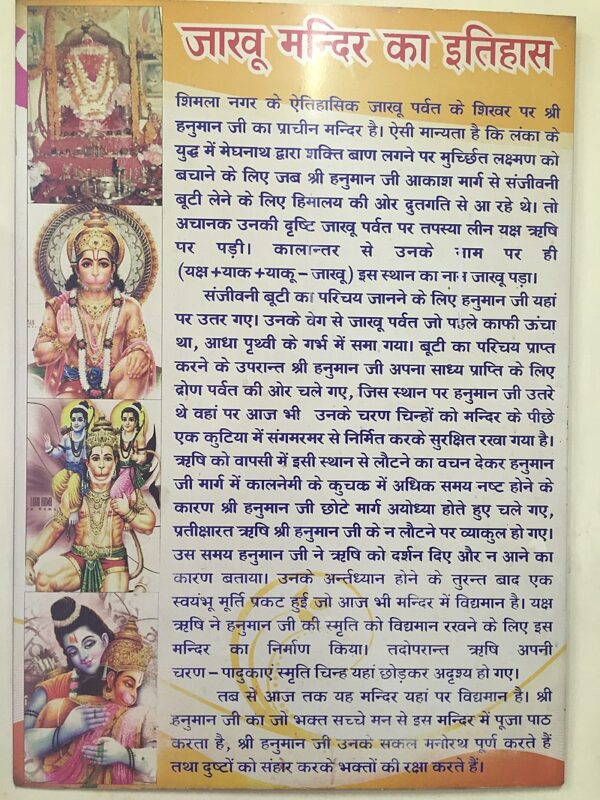 जाखू मन्दिर का इतिहास
शिमला नगर के ऐतिहासिक जाखू पर्वत के शिखर पर श्री
हनुमान जी का प्राचीन मन्दिर है। ऐसी मान्यता है कि लंका के
युद्ध में मेघनाथ द्वारा शक्ति बाण लगने पर मुर्च्छित लक्ष्मण को
बचाने के लिए जब श्री हनुमान जी आकाश मार्ग से संजीवनी
बूटी लेने के लिए हिमालय की ओर दुतगति से आ रहे थे। तो
अचानक उनकी दृष्टि जाखू पर्वत पर तपस्या लीन यक्ष ऋषि
पर पड़ी। कालान्तर से उनके नाम पर ही
(यक्ष+याक+याकू-जाखू) इस स्थान का नाम जाखू पड़ा।
संजीवनी बूटी का परिचय जानने के लिए हनुमान जी यहां
पर उतर गए। उनके वेग से जाखू पर्वत जो पहले काफी ऊंचा
था, आधा पृथ्वी के गर्भ में समा गया। बूटी का परिचय प्राप्त
करने के उपरान्त श्री हनुमान जी अपना साध्य प्राप्ति के लिए
द्रोण पर्वत की ओर चले गए, जिस स्थान पर हनुमान जी उतरे
थे वहां पर आज भी उनके चरण चिन्हों को मन्दिर के पीछे
एक कुटिया में संगमरमर से निर्मित करके सुरक्षित रखा गया है।
ऋषि को वापसी में इसी स्थान से लौटने का वचन देकर हनुमान
जी मार्ग में कालनेमी के कुचक में अधिक समय नष्ट होने के
कारण श्री हनुमान जी छोटे मार्ग अयोध्या होते हुए चले गए,
प्रतीक्षारत ऋषि श्री हनुमान जी के न लौटने पर व्याकुल हो गए।
उस समय हनुमान जी ने ऋषि को दर्शन दिए और न आने का
कारण बताया। उनके अर्न्तध्यान होने के तुरन्त बाद एक
स्वयंभू मूर्ति प्रकट हुई जो आज भी मन्दिर में विद्यमान है। यक्ष
ऋषि ने हनुमान जी की स्मृति को विद्यमान रखने के लिए इस
मन्दिर का निर्माण किया। तदोपरान्त ऋषि अपनी
चरण-पादुकाएं स्मृति चिन्ह यहां छोड़कर अदृश्य हो गए।
तब से आज तक यह मन्दिर यहां पर विद्यमान है। श्री
हनुमान जी का जो भक्त सच्चे मन से इस मन्दिर में पूजा पाठ
करता है, श्री हनुमान जी उनके सकल मनोरथ पूर्ण करते हैं
तथा दुष्टों को संहार करके भक्तों की रक्षा करते हैं।